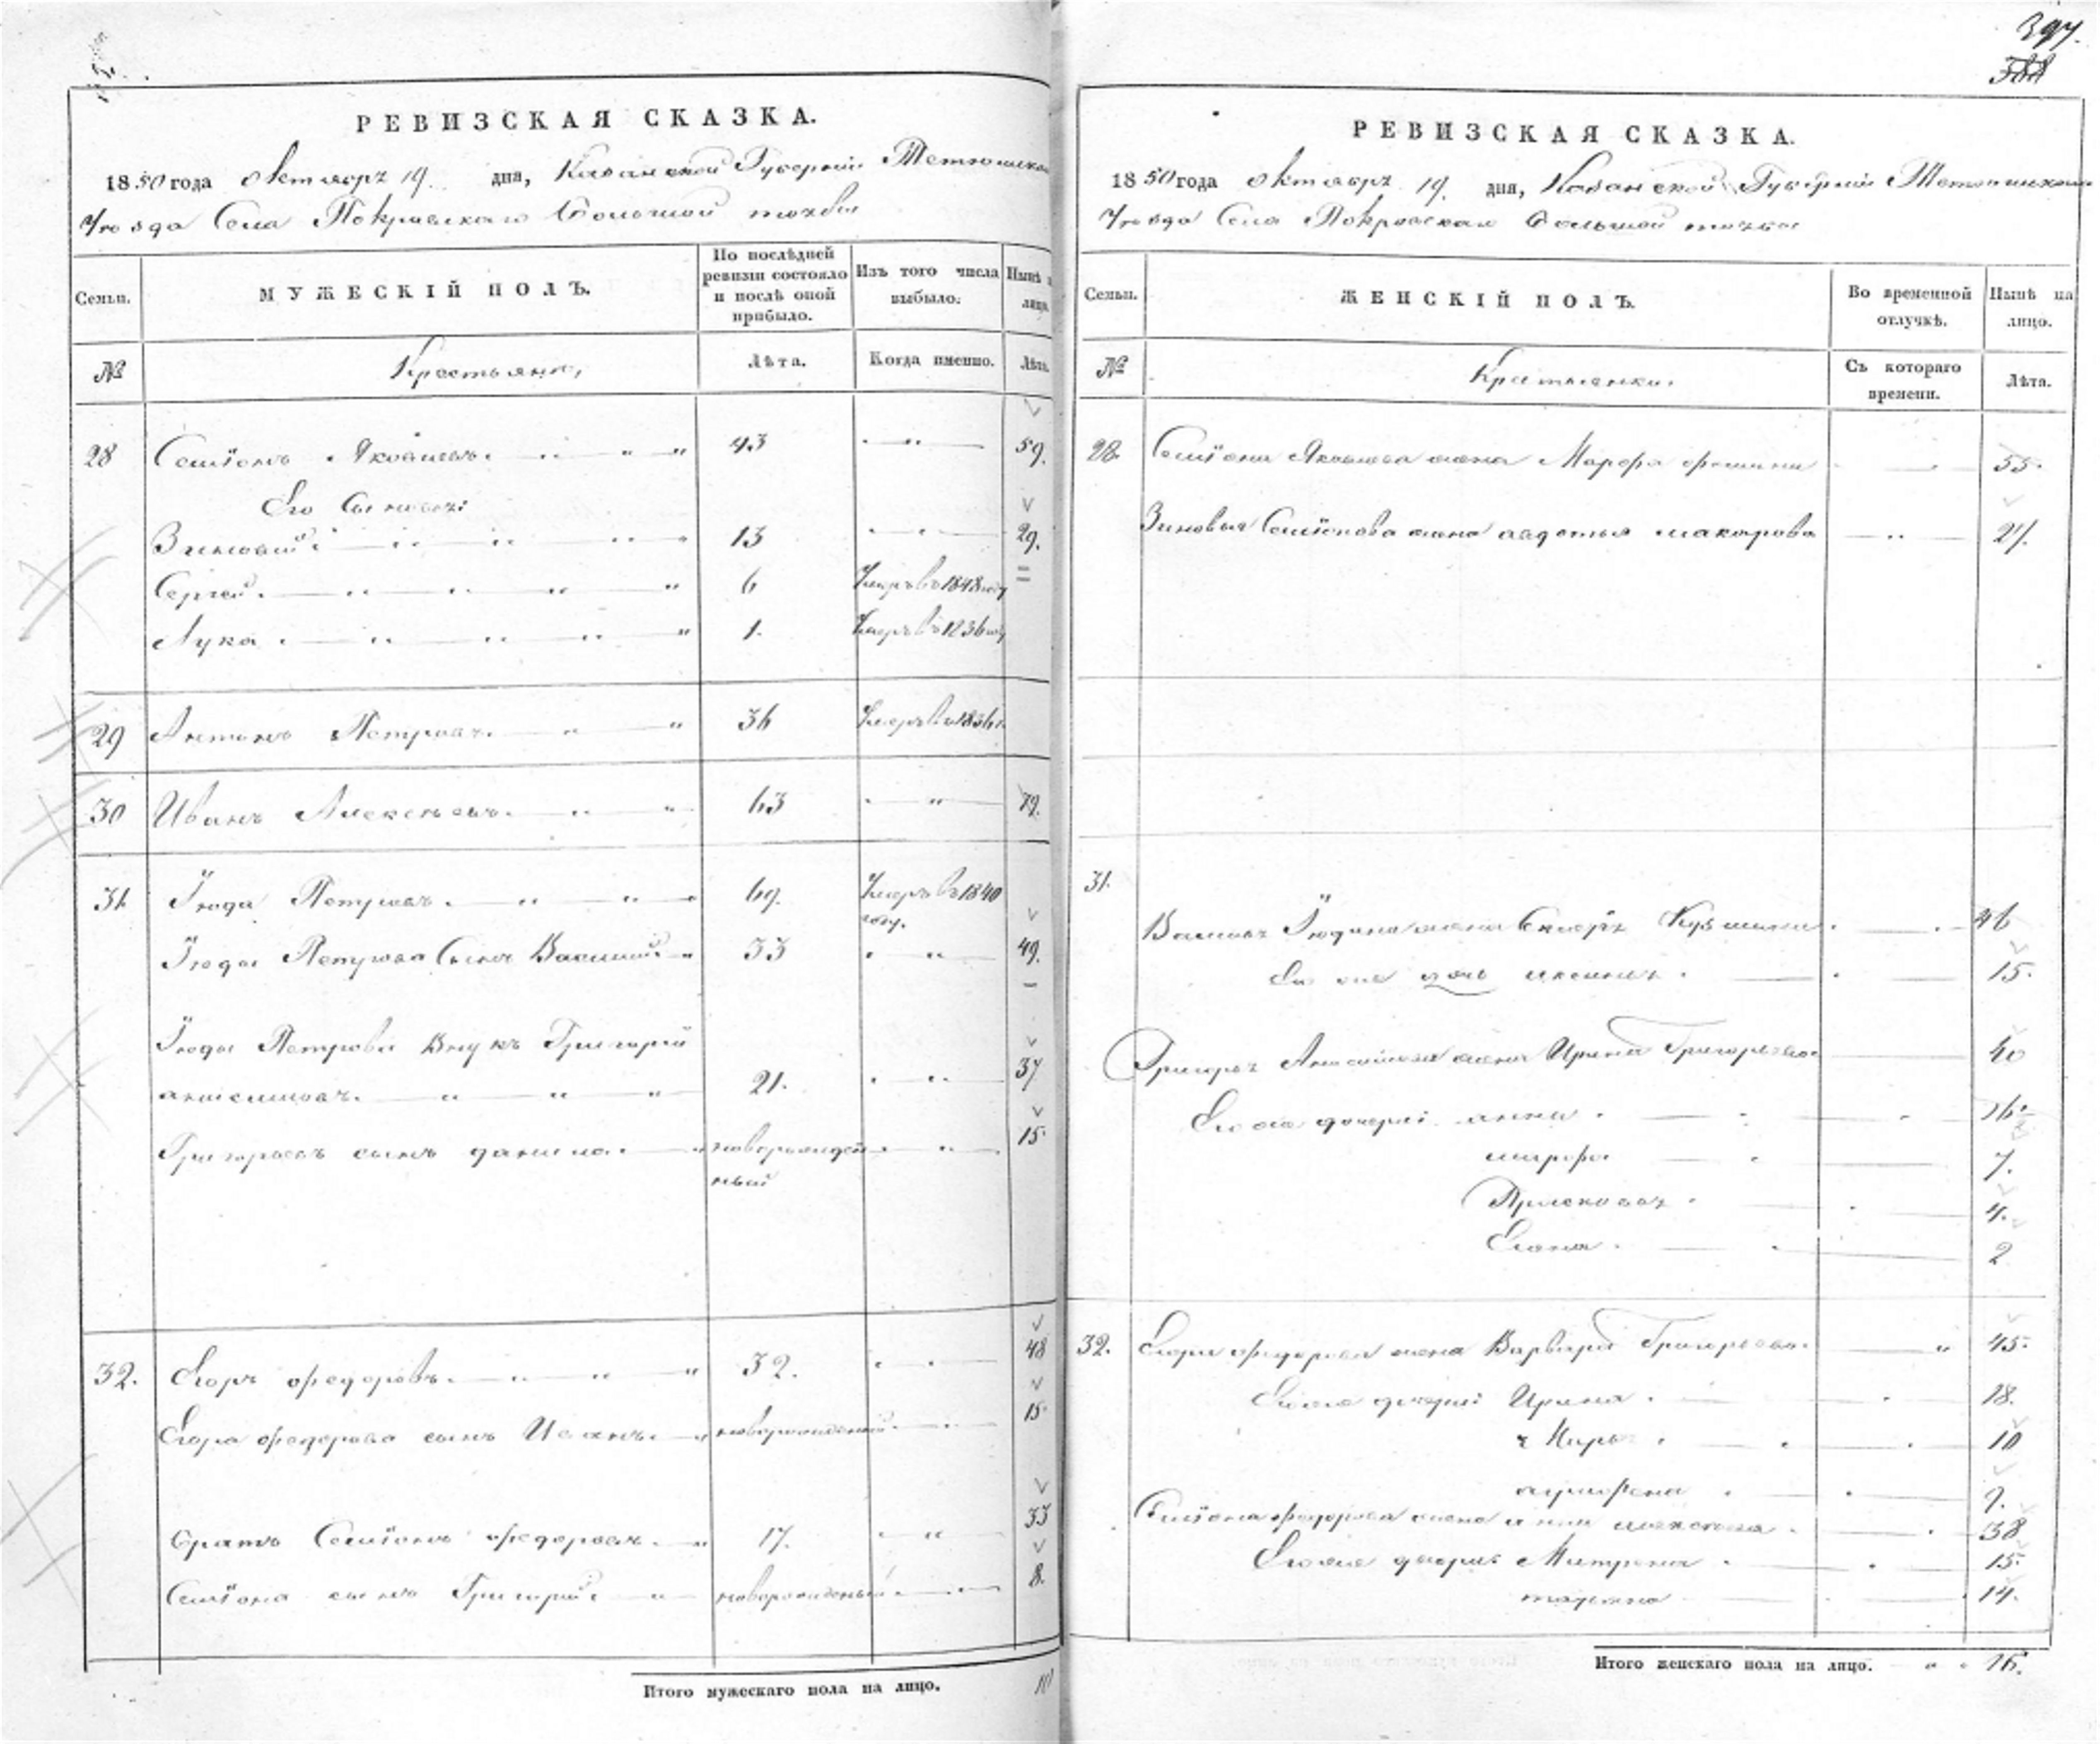 397.
388
РЕВИЗСКАЯ СКАЗКА.
1850 года Октября 19. дня, Казанской Губернии Тетюшска
Уѣзда Села Покровскаго Большой тожь
Семьи.
МУЖЕСКІЙ ПОЛЪ.
По послѣдней ревизіи состояло и послѣ оной прибыло.
Изъ того числа выбыло.
Нынѣ лица.
№
Крестьяне,
Лѣта.
Когда именно.
Лѣта.
28 Семіонъ Яковлевъ. 43 59.
Его Сыновья:
Зиновий 13 29.
Сергей. 6 Умеръ въ 1848 году
Лука. 1. Умеръ въ 1836 году
29 Антонъ Петровъ. 36 Умеръ въ 1836 г.
30 Иванъ Алексѣевъ. 63 79.
31 Іюда Петровъ. 69. Умеръ въ 1840
году.
Іюды Петрова Сынъ Василий 33 49.
Іюды Петрова Внукъ Григорий
21. 37
Григорьевъ сынъ данила. новорожден 15.
ный
32. Егоръ федоровъ. 32. 48
Егора федорова сынъ Иванъ. новорожденый 15.
братъ Семіонъ федоровъ. 17. 33
Семіона сынъ Григорий новорожденый 8.
Итого мужескаго пола на лицо. 10
РЕВИЗСКАЯ СКАЗКА.
1850 года октября 19. дня, Казанской Губернии Тетюшской
Уѣзда Села Покровскаго Большой тожь
Семьи.
ЖЕНСКІЙ ПОЛЪ.
Во временной отлучкѣ.
Нынѣ на лицо.
№
Крестьянки.
Съ котораго времени.
Лѣта.
28. Семіона Яковлева жена Марфа фомина 55.
Зиновья Семіонова жена авдотья макарова 27.
31.
Василья Іюдина жена Кузмина 46
Ея же дочь аксинья. 15.
Григорья жена Ирина Григорьева 40
Его же дочери анна. 16.
марфа 7.
Прасковья. 4.
Елена. 2
32. Егора федорова жена Варвара Григорьева. 45.
Его же дочери Ирина. 18.
Марья. 10
аграфена 9.
Семіона федорова жена анна алексеева. 38
Его же дочери Матрена 15.
татьяна 14.
Итого женскаго пола на лицо. 16.